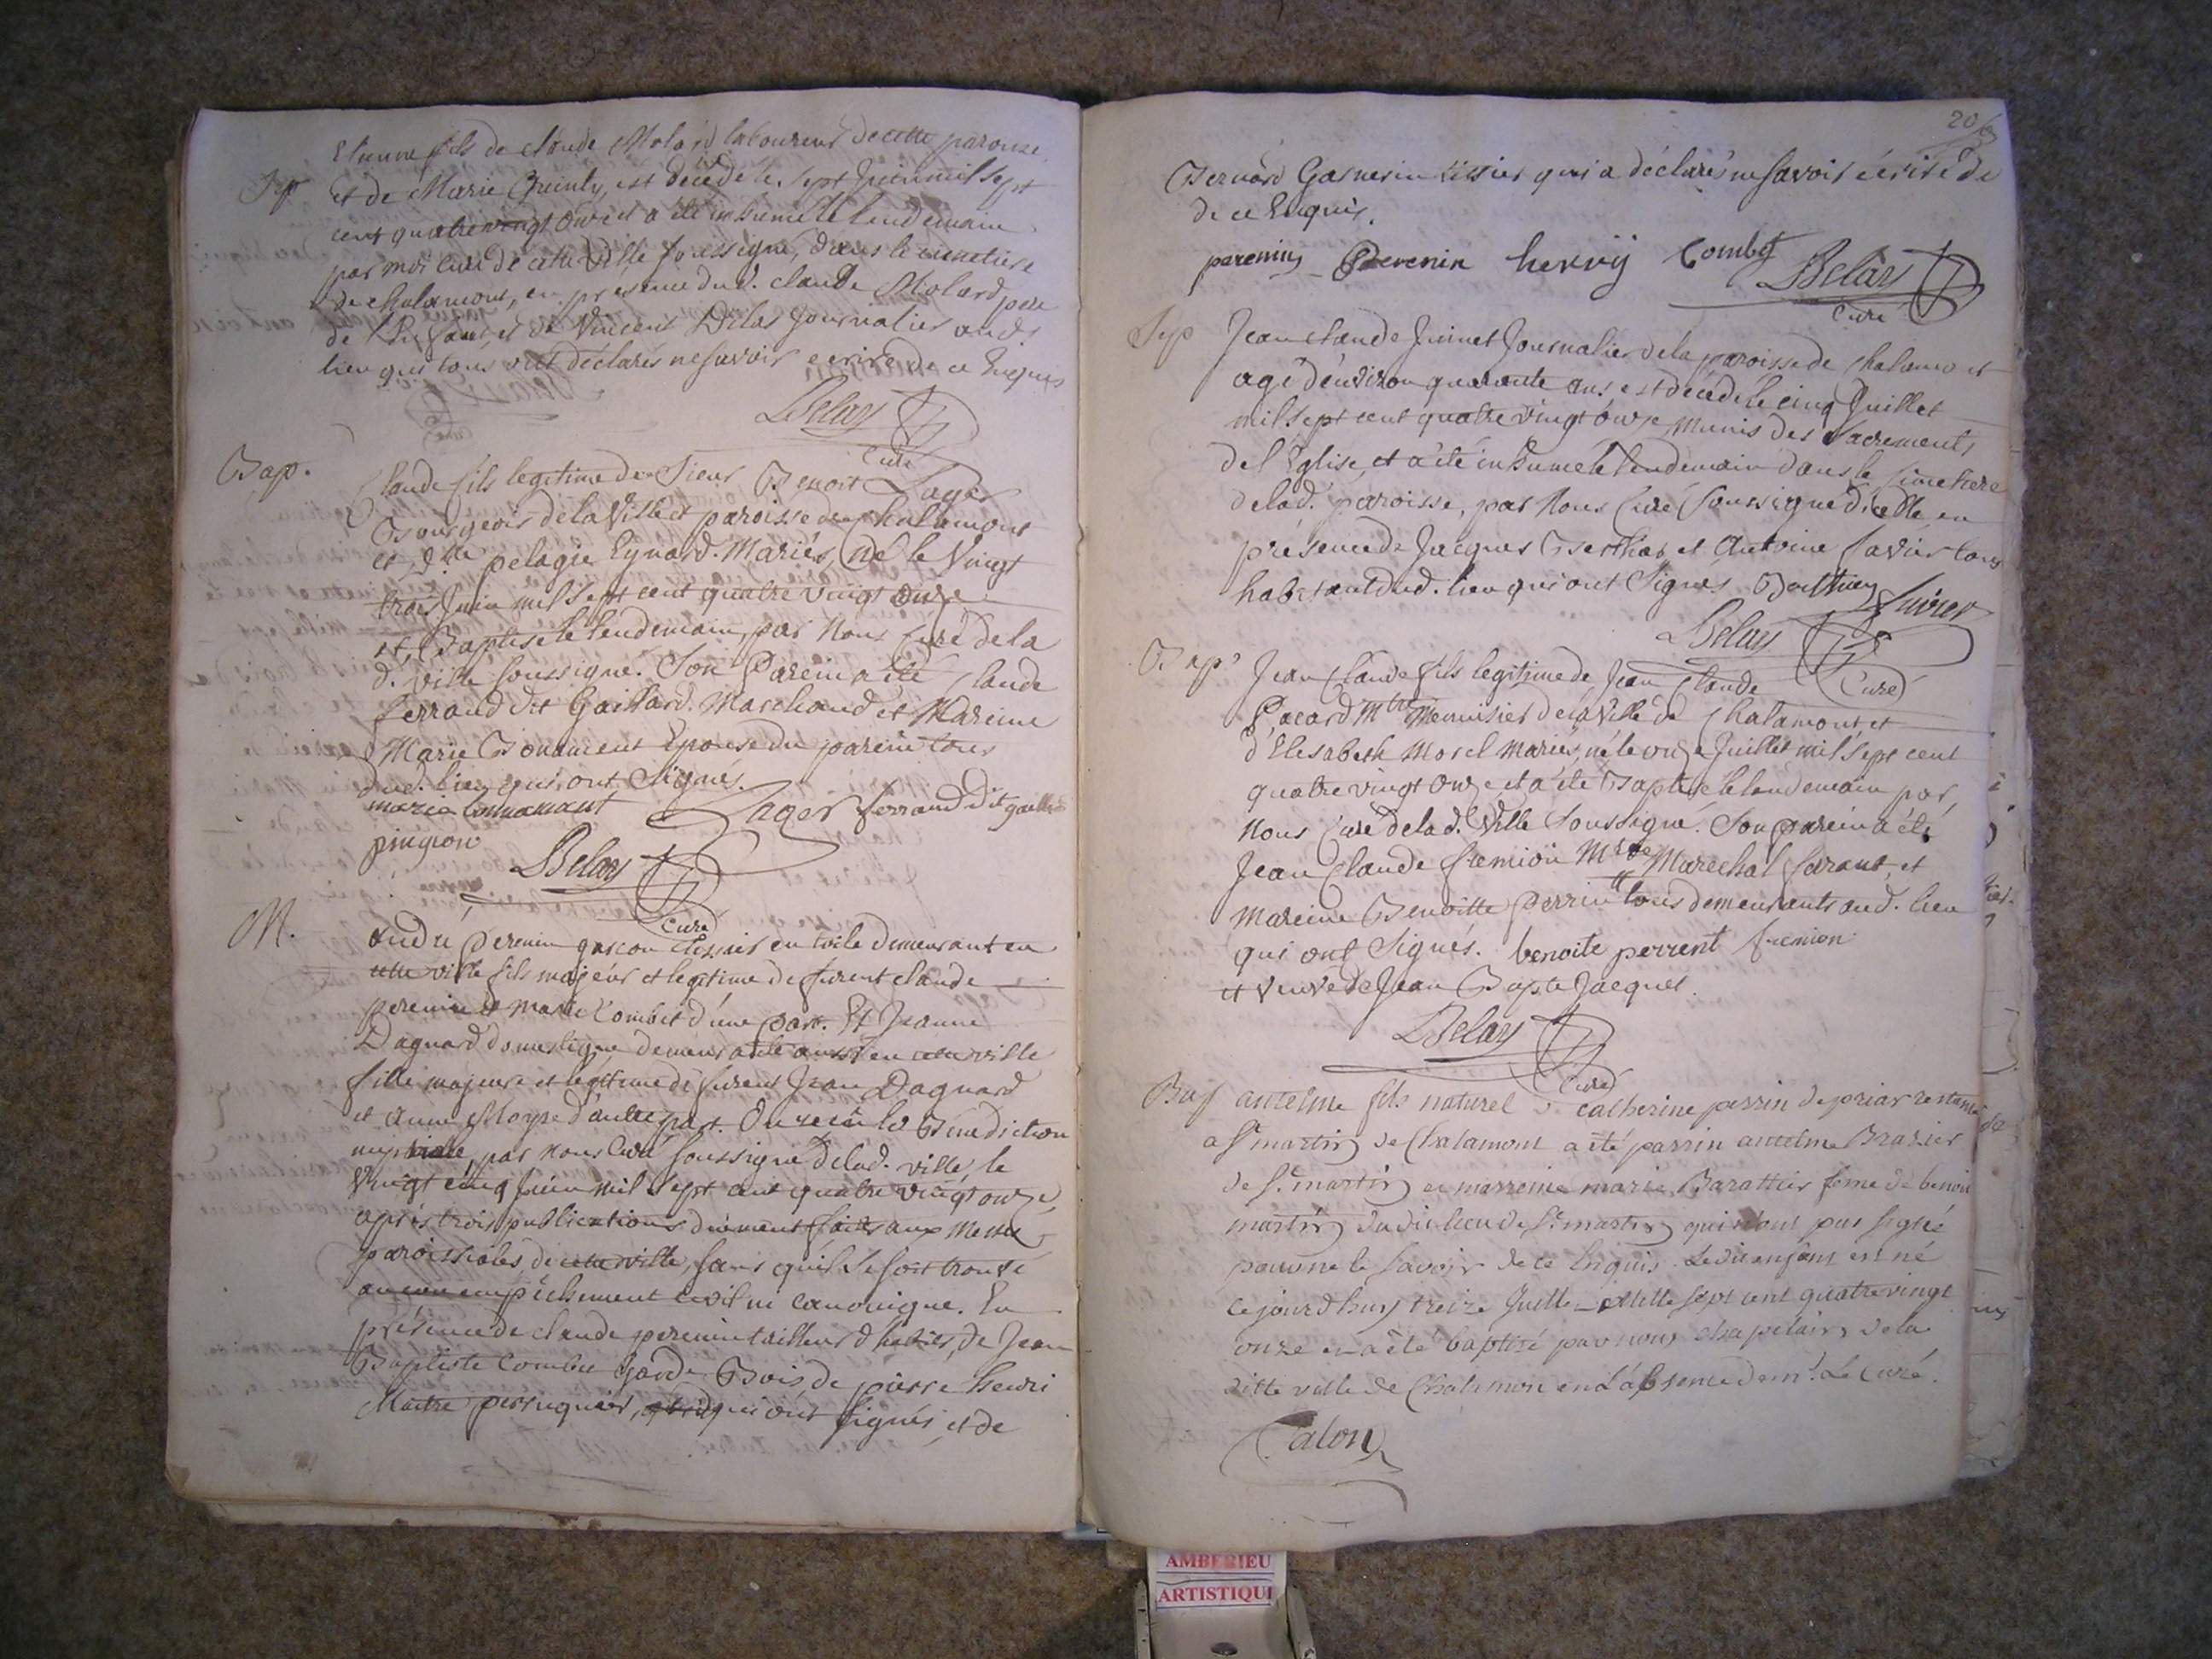 Etienne fils de claude Molard laboureur de cette paroisse
Sep et de Marie Quinly, est décédé le sept Juin mil sept
cent quatre vingt onze et a été inhumé le lendemain
par moi curé de cette ville soussigné, dans le cimetiere
de chalamont, en presence dud. claude Molard pere
de l'Enfant, et de Vincent Delas Journalier aud.
lieu qui tous ont déclarés ne savoir ecrire de ce Enquis
Belay
Curé
Bap. Claude fils legitime de Sieur Benoit Lager
Bourgeois de la Ville et paroisse de Chalamont
et d.lle pelagie Eynard. Mariés, né le Vingt
trois Juin mil sept cent quatre vingt onze
et Baptisé le lendemain, par Nous Curé de la
d. ville soussigné. Son Parein a été Claude
ferrand dit Gaillard. Marchand et Mareine
Marie Bonament Epouse du parein tous
dud. lieu qui ont Signés.
marie bonnamant Lager ferrand dit gaillard
pingion
Belay
Curé
M. André perenin garcon Tissier en toile demeurant en
cette ville fils majeur et legitime de furent claude
perenin et Marie Combet d'une part. Et Jeanne
Dagnard domestique demeurante aussi en cette ville
fille majeure et legitime de furent Jean Dagnard
et anne Moype d'autre part. On recu la Bénédiction
nuptiale, par nous Curé soussigné de lad. ville, le
Vingt cinq Juin mil sept cent quatre vingt onze,
après trois publications duement faites aux Messes
paroissiales de cette ville, sans qu'il se soit trouvé
aucun empêchement civil ni canonique. En
présence de claude perenin tailleur d'habits, de Jean
Baptiste Combet Garde Bois de pierre henri
Maitre perruquier, qui ont signés, et de
20
Bernard Gasnerin tissier qui a déclaré ne savoir écrire de
de ce Enquis.
perenin Perenin henrij Combet Belay
Curé
Sep Jean claude Juinet Journalier de la paroisse de Chalamont
agé d'environ quarante ans est décédé le cinq Juillet
mil sept cent quatre vingt onze, munis des Sacrements
de l'Eglise, et a été inhumé le lendemain dans le Cimetiere
de lad. paroisse, par Nous Curé soussigné d'icelle, en
présence de Jacques Berthet et Antoine favier tous
habitant dud. lieu qui ont Signés Berthey
Belay
Curé
Bap. Jean Claude fils legitime de Jean Claude
Pacard M.tre Menuisier de la Ville de Chalamont et
d'Elesabeth Morel Mariés, né le onze Juillet mil sept cent
quatre vingt onze et a été Baptisé le landemain par,
Nous Curé de lad. Ville soussigné. Son parein a été
Jean Claude fremion M.tre Marechal ferrant, et
Mareine Benoitte perrin tous demeurants aud. lieu
qui ont Signés. benoite perrent fremion
et Veuve de Jean Bapte Jacquet.
Belay
Curé
Bap antelme fils naturel de catherine perrin de priar restante
a St martin de Chalamont a été parrin antelme Brazier
de St martin et marreine marie Barattier feme de benoit
martin du dit lieu de St martin qui n'ont pas signé
pour ne le savoir de ce Enquis. Le dit enfant est né
ce jourd'huy treize Juillet Mille sept cent quatre vingt
onze et a été baptizé par nous chapelain de la
ditte ville de Chalamont en l'absence de mr. Le Curé.
Calon
AMBERIEU
ARTISTIQU